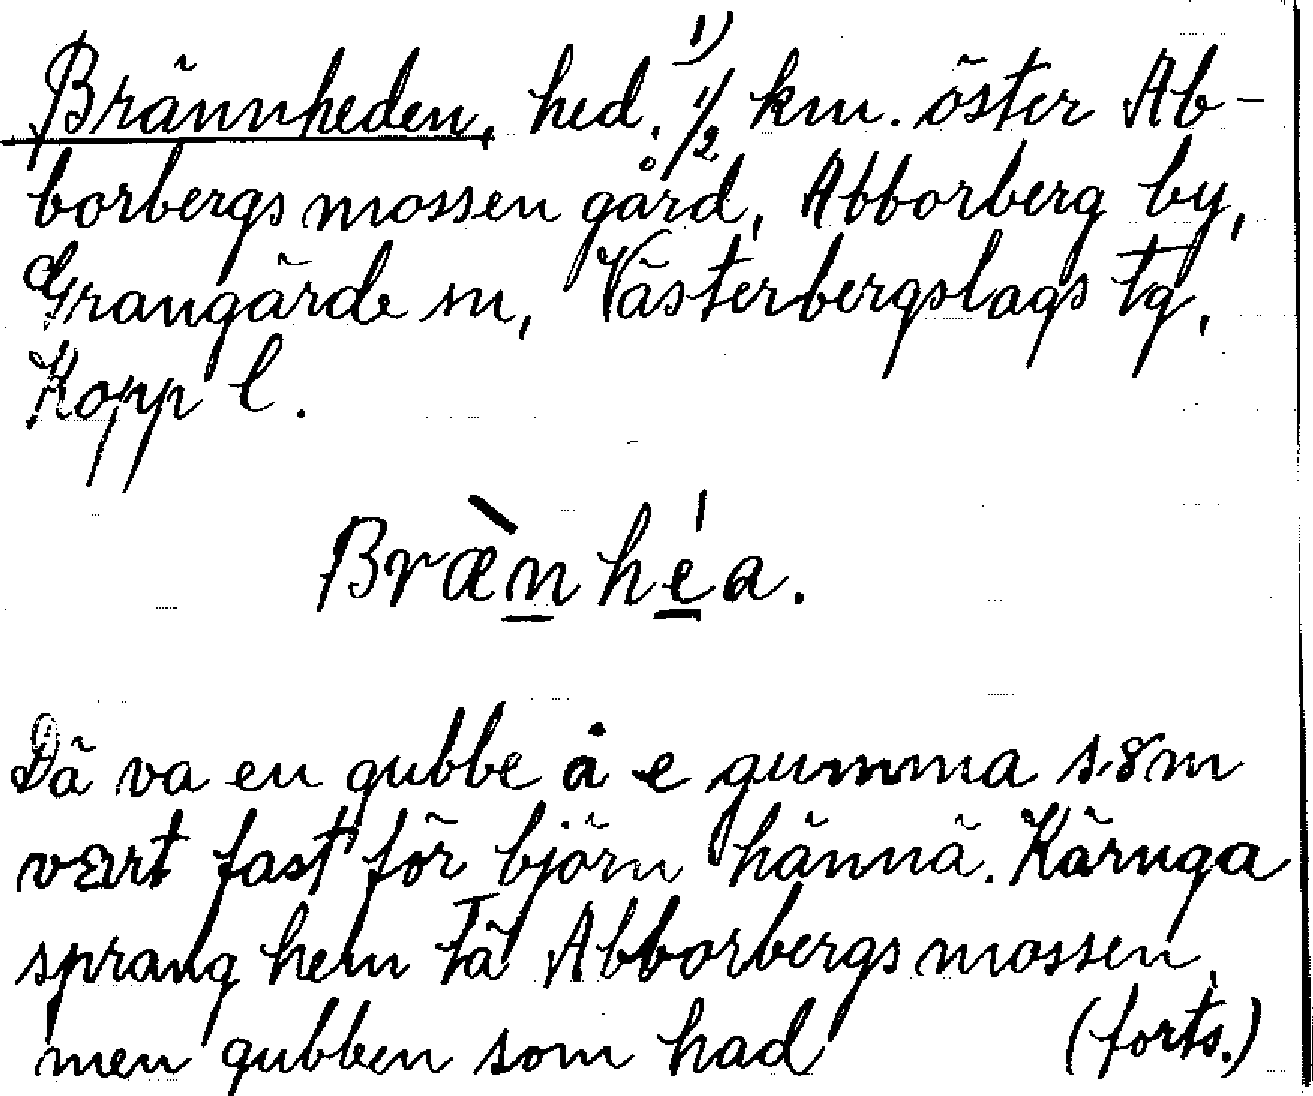 Brännheden, hed. 1) 1/2 km. öster Ab-
borbergsmossen gård, Abborberg by,
Grangärde sn, Västerbergslags tg,
Kopp l.
Bræ̀nhéa.
Dä va en gubbe å e gumma sôm
vært fast för björn hännä. Käringa
sprang hem tä Abborbergsmossen,
men gubben som had (forts.)